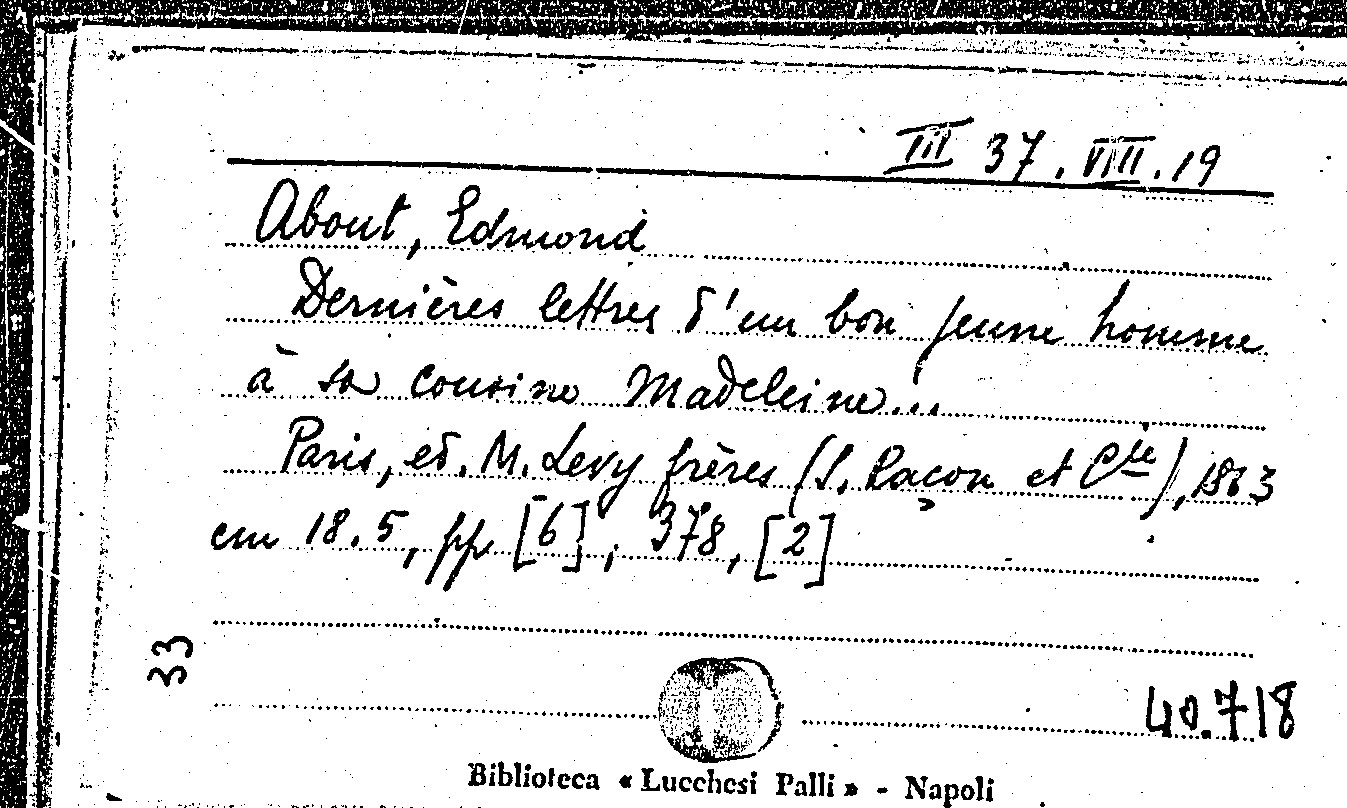 III 37. VIII. 19
About, Edmond
Dernières lettres d'un bon jeune homme
à sa cousine Madeleine...
Paris, ed. M. Levy frères (S. Raçon et Cie), 1863
cm 18.5, pp. [6], 378, [2]
33
40.718
Biblioteca « Lucchesi Palli » - Napoli